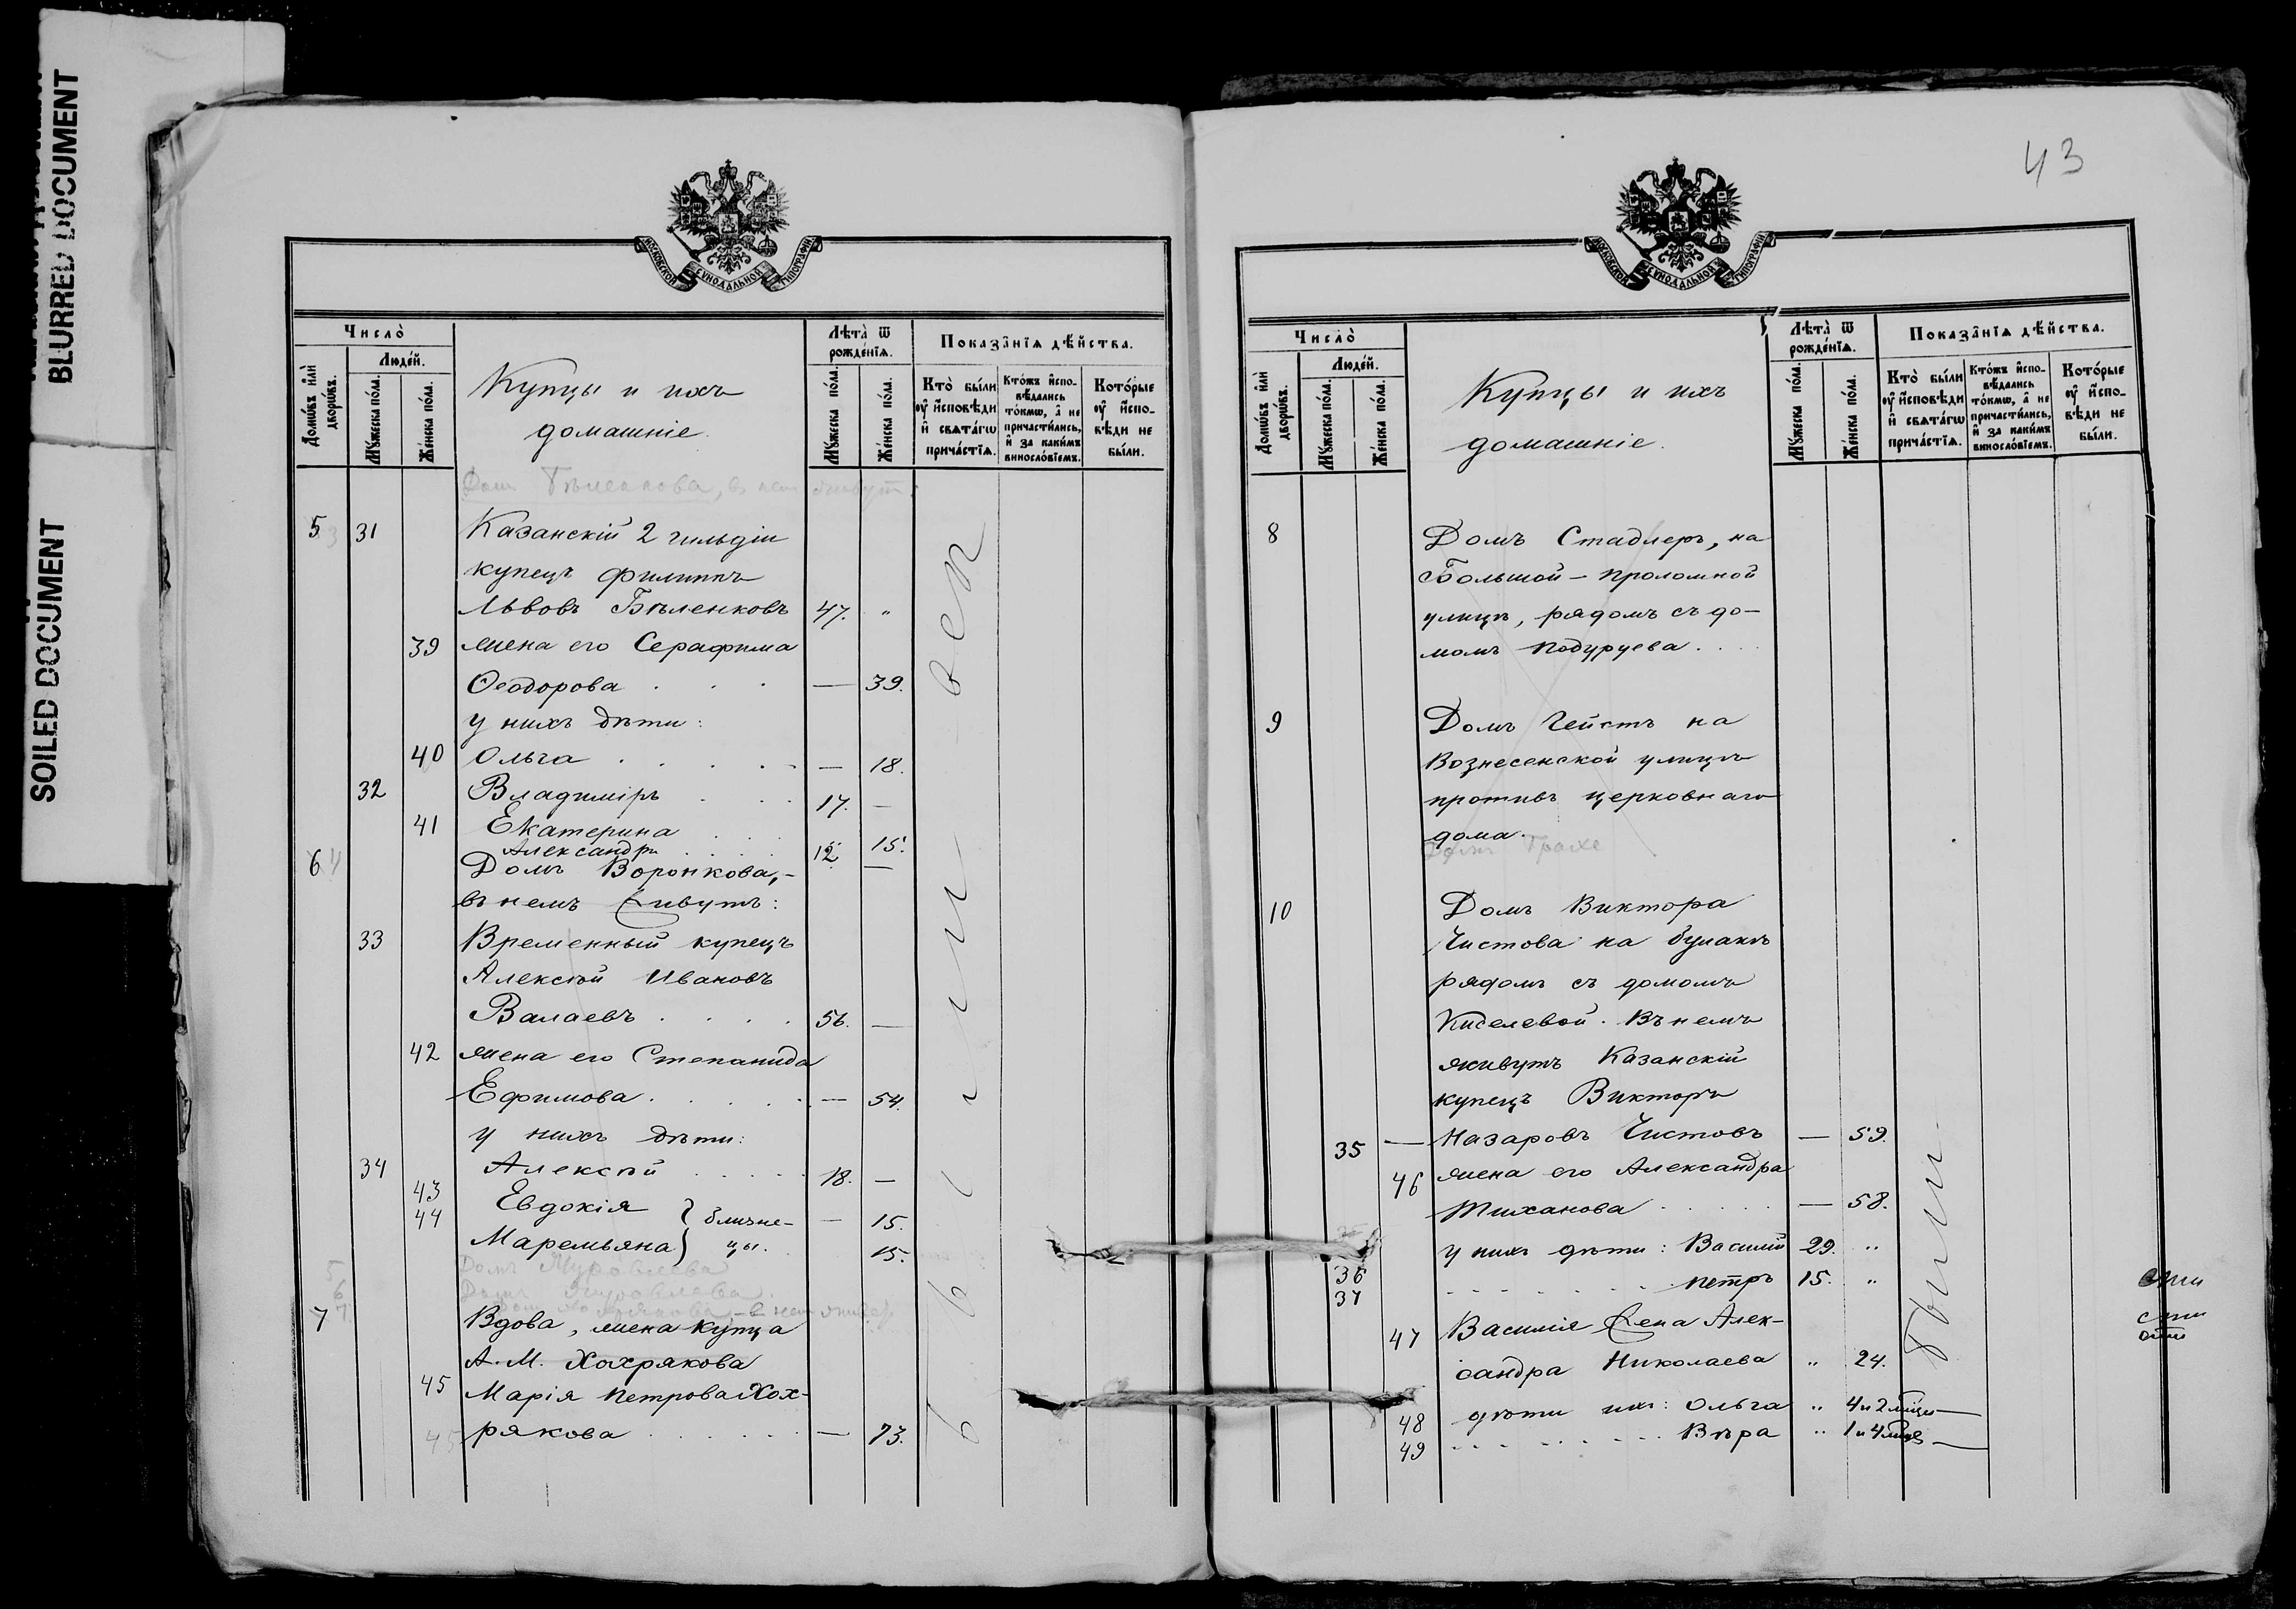 BLURRED DOCUMENT
SOILED DOCUMENT
МОСКОВСКОЙ СѴНОДАЛЬНОЙ ТИПОГРАФІИ
Число̀
Людéй.
Домѡ́въ и҆лѝ дворѡ́въ.
Мꙋ́жеска по́ла.
Же́нска по́ла.
Купцы и ихъ
домашніе.
Лѣта̀ ѿ рожде́нїѧ.
Мꙋ́жеска по́ла.
Же́нска по́ла.
Показа̑нїѧ дѣ́йства.
Кто̀ бы́ли ᲂу҆ и҆́сповѣди и҆ свѧта́гѡ прича́стїѧ.
Кто́жъ и҆спо-вѣ́дались то́кмѡ, а҆ не причасти́лись, и҆ за каки́мъ винословїемъ.
Кото́рые ᲂу҆ и҆́спо-вѣди не бы́ли.
Домъ Бѣленкова, въ немъ живутъ:
5 31 Казанскій 2 гильдіи
купецъ Филиппъ
Львовъ Бѣленковъ 47. "
39 жена его Серафима
Ѳеодорова . . . — 39.
у нихъ дѣти:
40 Ольга . . . . . — 18.
32 Владиміръ . . . 17. —
41 Екатерина . . . 15.
Александръ . . . . 12. —
6 4 Домъ Воронкова, –
въ немъ живутъ:
33 Временный купецъ
Алексѣй Ивановъ
Валаевъ . . . . 56. —
42 жена его Степанида
Ефимова . . . . . — 54.
у нихъ дѣти:
34 Алексѣй . . . . 18. —
43 Евдокія } близне- — 15.
44 Маремьяна } цы. 15.
5 Домъ Журавлева
6 Домъ
7 7 Вдова, жена купца
А. М. Хохрякова
45 Марія Петрова Хох-
45 рякова . . . . . . — 73.
43
МОСКОВСКОЙ СѴНОДАЛЬНОЙ ТИПОГРАФІИ
Число̀
Людéй.
Домѡ́въ и҆лѝ дворѡ́въ.
Мꙋ́жеска по́ла.
Же́нска по́ла.
Купцы и ихъ
домашніе.
Лѣта̀ ѿ рожде́нїѧ.
Мꙋ́жеска по́ла.
Же́нска по́ла.
Показа̑нїѧ дѣ́йства.
Кто̀ бы́ли ᲂу҆ и҆́сповѣди и҆ свѧта́гѡ прича́стїѧ.
Кто́жъ и҆спо-вѣ́дались то́кмѡ, а҆ не причасти́лись, и҆ за каки́мъ винословїемъ.
Кото́рые ᲂу҆ и҆́спо-вѣди не бы́ли.
8 Домъ Стадлеръ, на
Большой – Проломной
улицѣ, рядомъ съ до-
момъ Подуруева . . .
9 Домъ Гейстъ на
Вознесенской улицѣ
противъ церковнаго
дома.
Домъ Грахе
10 Домъ Виктора
Чистова на булакѣ
рядомъ съ домомъ
Киселевой. Въ немъ
живутъ Казанскій
купецъ Викторъ
35 — Назаровъ Чистовъ — 59.
46 жена его Александра
Тиханова . . . . . — 58.
у нихъ дѣти: Василій 29. "
36 . . . . . . . Петръ 15. "
37
47 Василія жена Алек-
сандра Николаева " 24.
48 дѣти ихъ: Ольга " 4 и 2 мѣс. —
49 . . . . . . . Вѣра " 1 и 4 мѣс. —
были